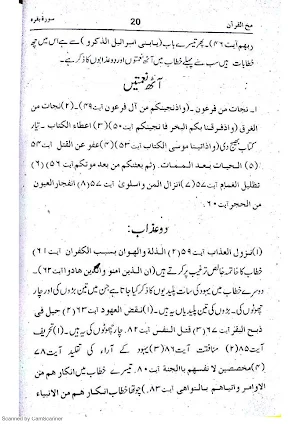 سورة بقره
20
مخ القرآن
ربهم آیت ۴۶)۔ پھر تیسرے باب (یابنی اسرائیل اذکرو) سے ہے اس میں چھ
خطابات ہیں سب سے پہلے خطاب میں آٹھ نعمتوں اور دو عذابوں کا ذکر ہے۔
آٹھ نعمتیں
۱۔ نجات من فرعون۔ (واذنجینکم من آل فرعون آیت ۴۹)۔ (۲) نجات من
الغرق (واذفرقنا بکم البحر فانجینکم آیت ۵۰) (۳) اعطاء الکتاب۔ تیار
کتاب بھیج دی (واذاتینا موسی الکتاب آیت ۵۳) (۴) عفو عن القتل آیت ۵۴
(۵) الحیات بعد الممات۔ (ثم بعثنکم من بعد موتکم آیت ۵۶) (۶)
تظلیل الغمام آیت ۵۷ (۷) نزال المن واسلوی آیت ۵۷ (۸) انفجار العیون
من الحجر آیت ۶۰
دو عذاب:
(۱) نزول العذاب آیت ۵۹ (۲) الذلة والهوان بسبب الکفران آیت ۶۱
خطاب کا خاتمہ خالص ترغیب پر کرتے ہیں (ان الذین امنو والذین هادوا آیت ۶۲)۔
دوسرے خطاب میں یہود کی سات پلیدیوں کا ذکر کیا جاتا ہے جن میں تین بڑوں کی اور چار
چھوٹوں کی۔ بڑوں کی تین پلیدیاں یہ ہیں۔ (۱) نقض العهود آیت ۶۳ (۲) حیل فی
ذبح البقر آیت ۶۷ (۳) قتل النفس آیت ۸۲۔ چھوٹوں کی چار یہ ہیں۔ (۱) تحریف
آیت ۸۵ (۲) منافقت آیت ۸۶ (۳) یہود کے آراء کی تقلید آیت ۷۸
(۴) مخصصین لا نفسهم بالجنة آیت ۸۰۔ تیسرا خطاب انکار هم من
الاوامر واتباهم بالنواهی آیت ۸۳۔ چوتھا خطاب انکار هم من الانبیاء
Scanned by CamScanner